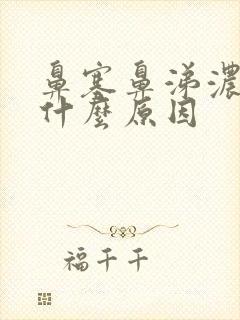 鼻塞鼻涕濃
什麼原因
福千千